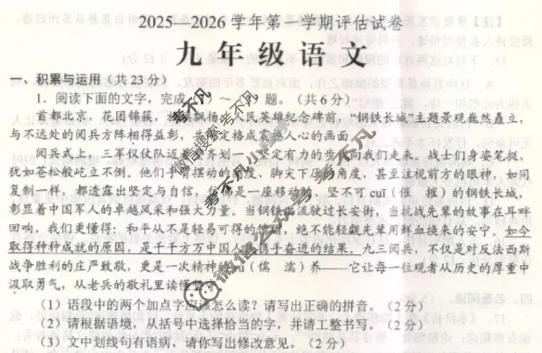 2025—2026学年第一学期评估试卷
九年级语文
一、积累与运用（共23分）
1. 阅读下面的文字，完成 题。（共6分）
首都北京，花团锦簇， 飘扬， 人民英雄纪念碑前，“钢铁长城”主题景观巍然矗立，
与不远处的阅兵方阵相得益彰， 定格成震撼人心的画面
阅兵式上，三军仪仗队迈着 齐划一、坚定有力的步 向我们走来。战士们身姿笔挺，
犹如苍松般屹立不倒。他们手臂摆动的 度、脚尖下压的角度，甚至注视前方的眼神，如同
复制一样，都透露出坚定与自信， 佛是一座移动的、坚不可cuī（催 摧）的钢铁长城，
彰显着中国军人的卓越风采和强大力量。当钢铁洪流驶过长安街，当抗战先辈的故事在耳畔
回响，我们更懂得：和平从不是轻易可得的 ，绝不能轻觑先辈用鲜血换来的安宁。如今
取得种种成就的原因，是千千万万中国人 携手奋进的结果。九三阅兵，不仅是对反法西斯
战争胜利的庄严致敬，更是一次精神的 （儒 濡）养——它让每一位观者从历史的厚重中
汲取勇气，从老兵的敬礼里读懂
（1）语段中的两个加点字应该怎么读？请写出正确的拼音。（2分）
（2）请根据语境，从括号中选择恰当的字，并请工整书写。（2分）
（3）文中划线句有语病，请你写出修改意见。（2分）
考不凡
微信搜索
考不凡
考不凡